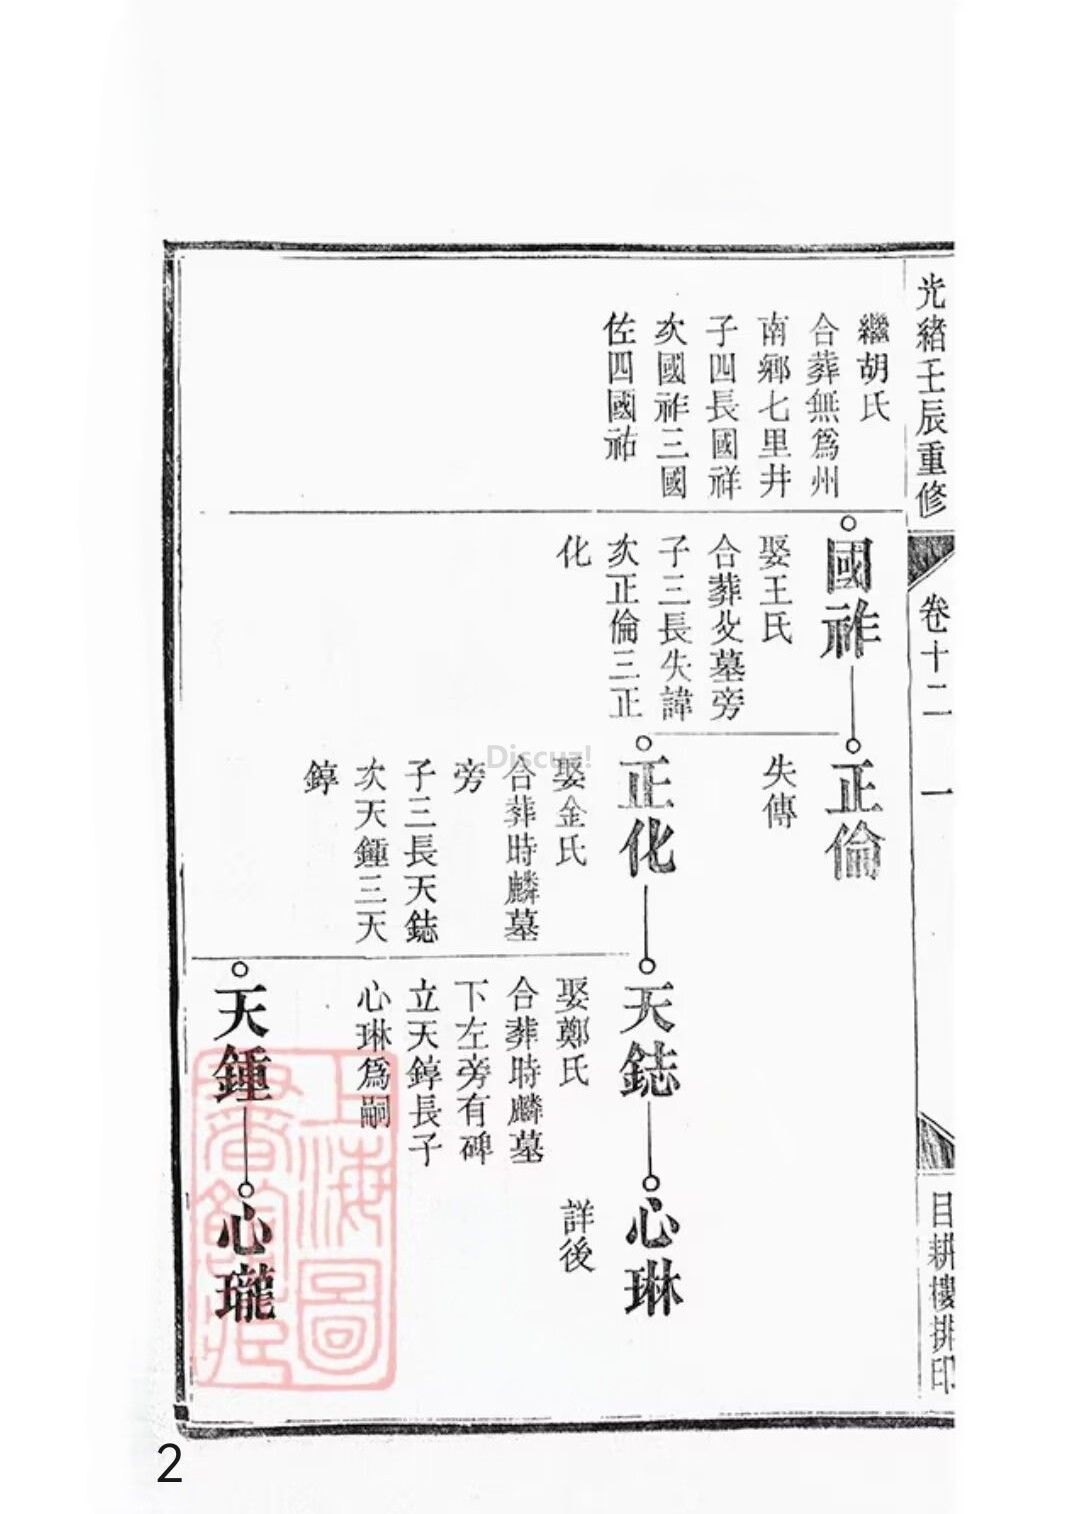 光緒壬辰重修
卷十二
一
目耕樓排印
繼胡氏
合葬無爲州
南鄉七里井
子四長國祥
次國祚三國
佐四國祐
國祚
娶王氏
合葬父墓旁
子三長失諱
次正倫三正
化
正倫
失傳
正化
娶金氏
合葬時麟墓
旁
子三長天鋕
次天鍾三天
錞
天鋕
娶鄭氏
合葬時麟墓
下左旁有碑
立天錞長子
心琳爲嗣
心琳
詳後
天鍾
心瓏
上海圖
書館藏
Discuz!
2